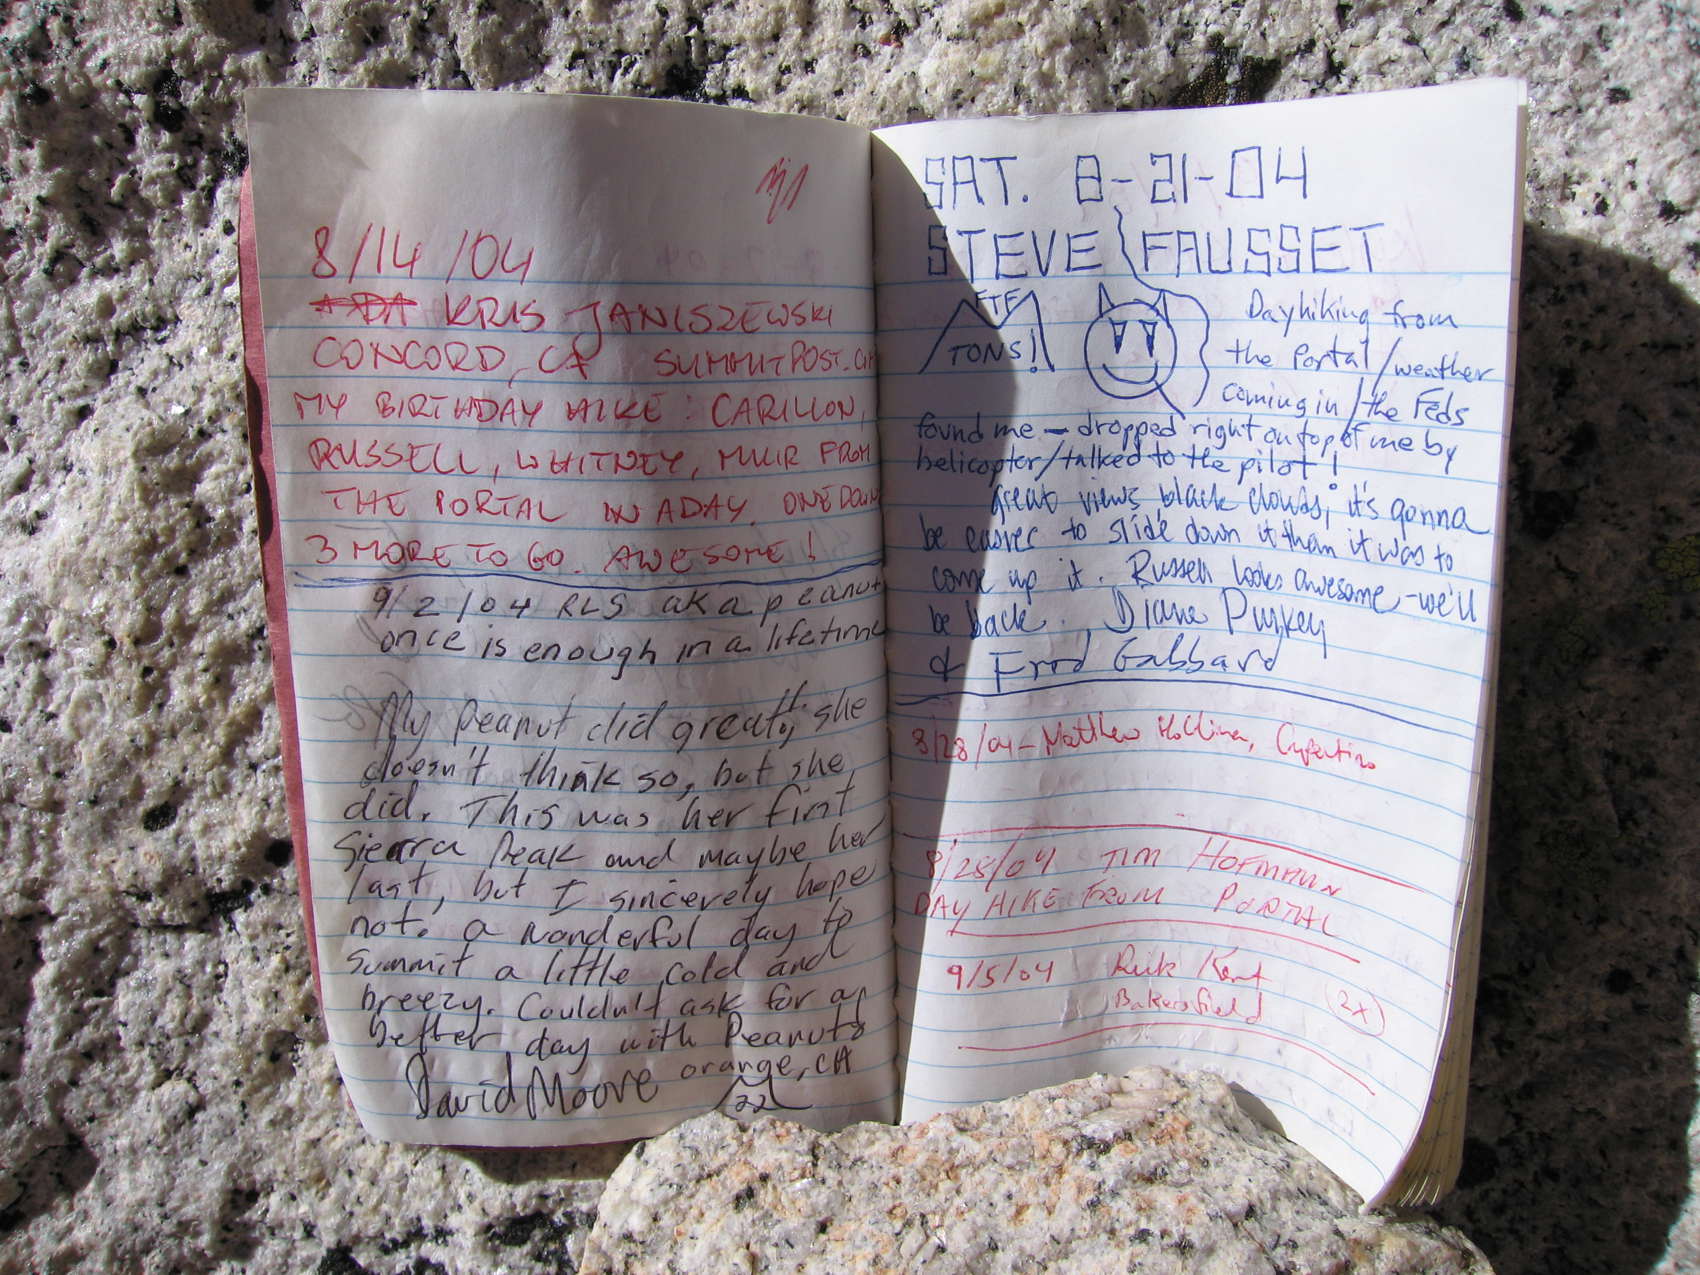 8/14/04
KRIS JANISZEWSKI
CONCORD, CA SUMMITPOST.
MY BIRTHDAY HIKE: CARILLON,
RUSSELL, WHITNEY, MUIR FROM
THE PORTAL IN A DAY. ONE DOWN
3 MORE TO GO. AWESOME!
9/2/04 RLS aka peanut
once is enough in a lifetime
My Peanut did great, she
doesn't think so, but she
did. This was her first
Sierra Peak and maybe her
last, but I sincerely hope
not. a wonderful day to
summit a little cold and
breezy. Couldn't ask for a
better day with Peanuts
David Moore orange, CA
22
SAT. 8-21-04
STEVE FAUSSET
FTF
TONS!
Dayhiking from
the Portal/weather
coming in/the Feds
found me - dropped right on top of me by
helicopter/talked to the pilot!
great views, black clouds; it's gonna
be easier to slide down it than it was to
come up it. Russell looks awesome - we'll
be back. Diane Purkey
& Fred Gabbard
8/28/04 - Matthew Cupertino
8/28/04 TIM HOFMANN
DAY HIKE FROM PORTAL
9/5/04 Rick Kent
Bakersfield (2x)